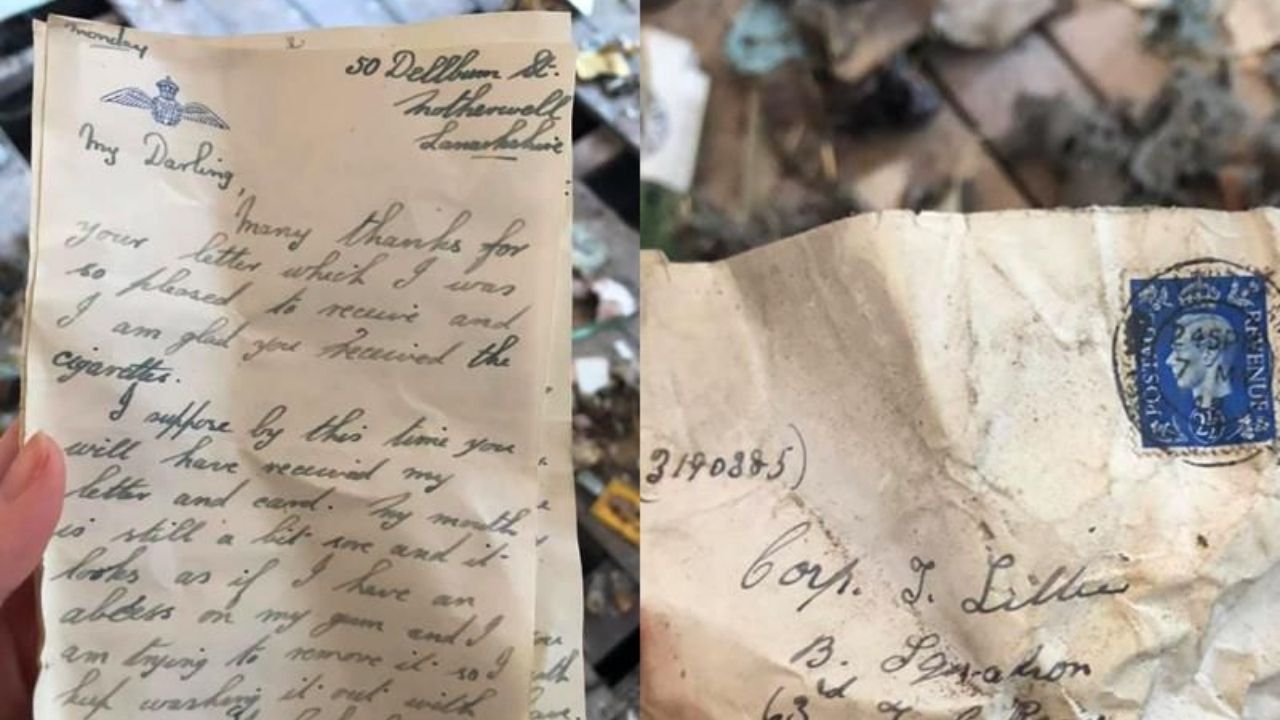 monday
50 Dellburn St.
Motherwell
Lanarkshire
My Darling,
Many thanks for
your letter which I was
so pleased to receive and
I am glad you received the
cigarettes.
I suppose by this time you
will have received my
letter and card. My mouth
is still a bit sore and it
looks as if I have an
abcess on my gum and I
am trying to remove it so I
keep washing it out with
POSTAGE
REVENUE
2½
(3190385)
Corp. T. Lillie
B. Squadron
63rd